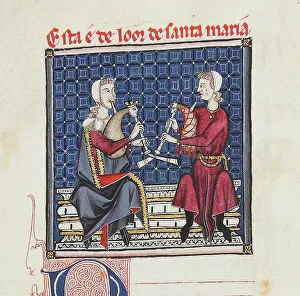 Esta é de loor de santa maria